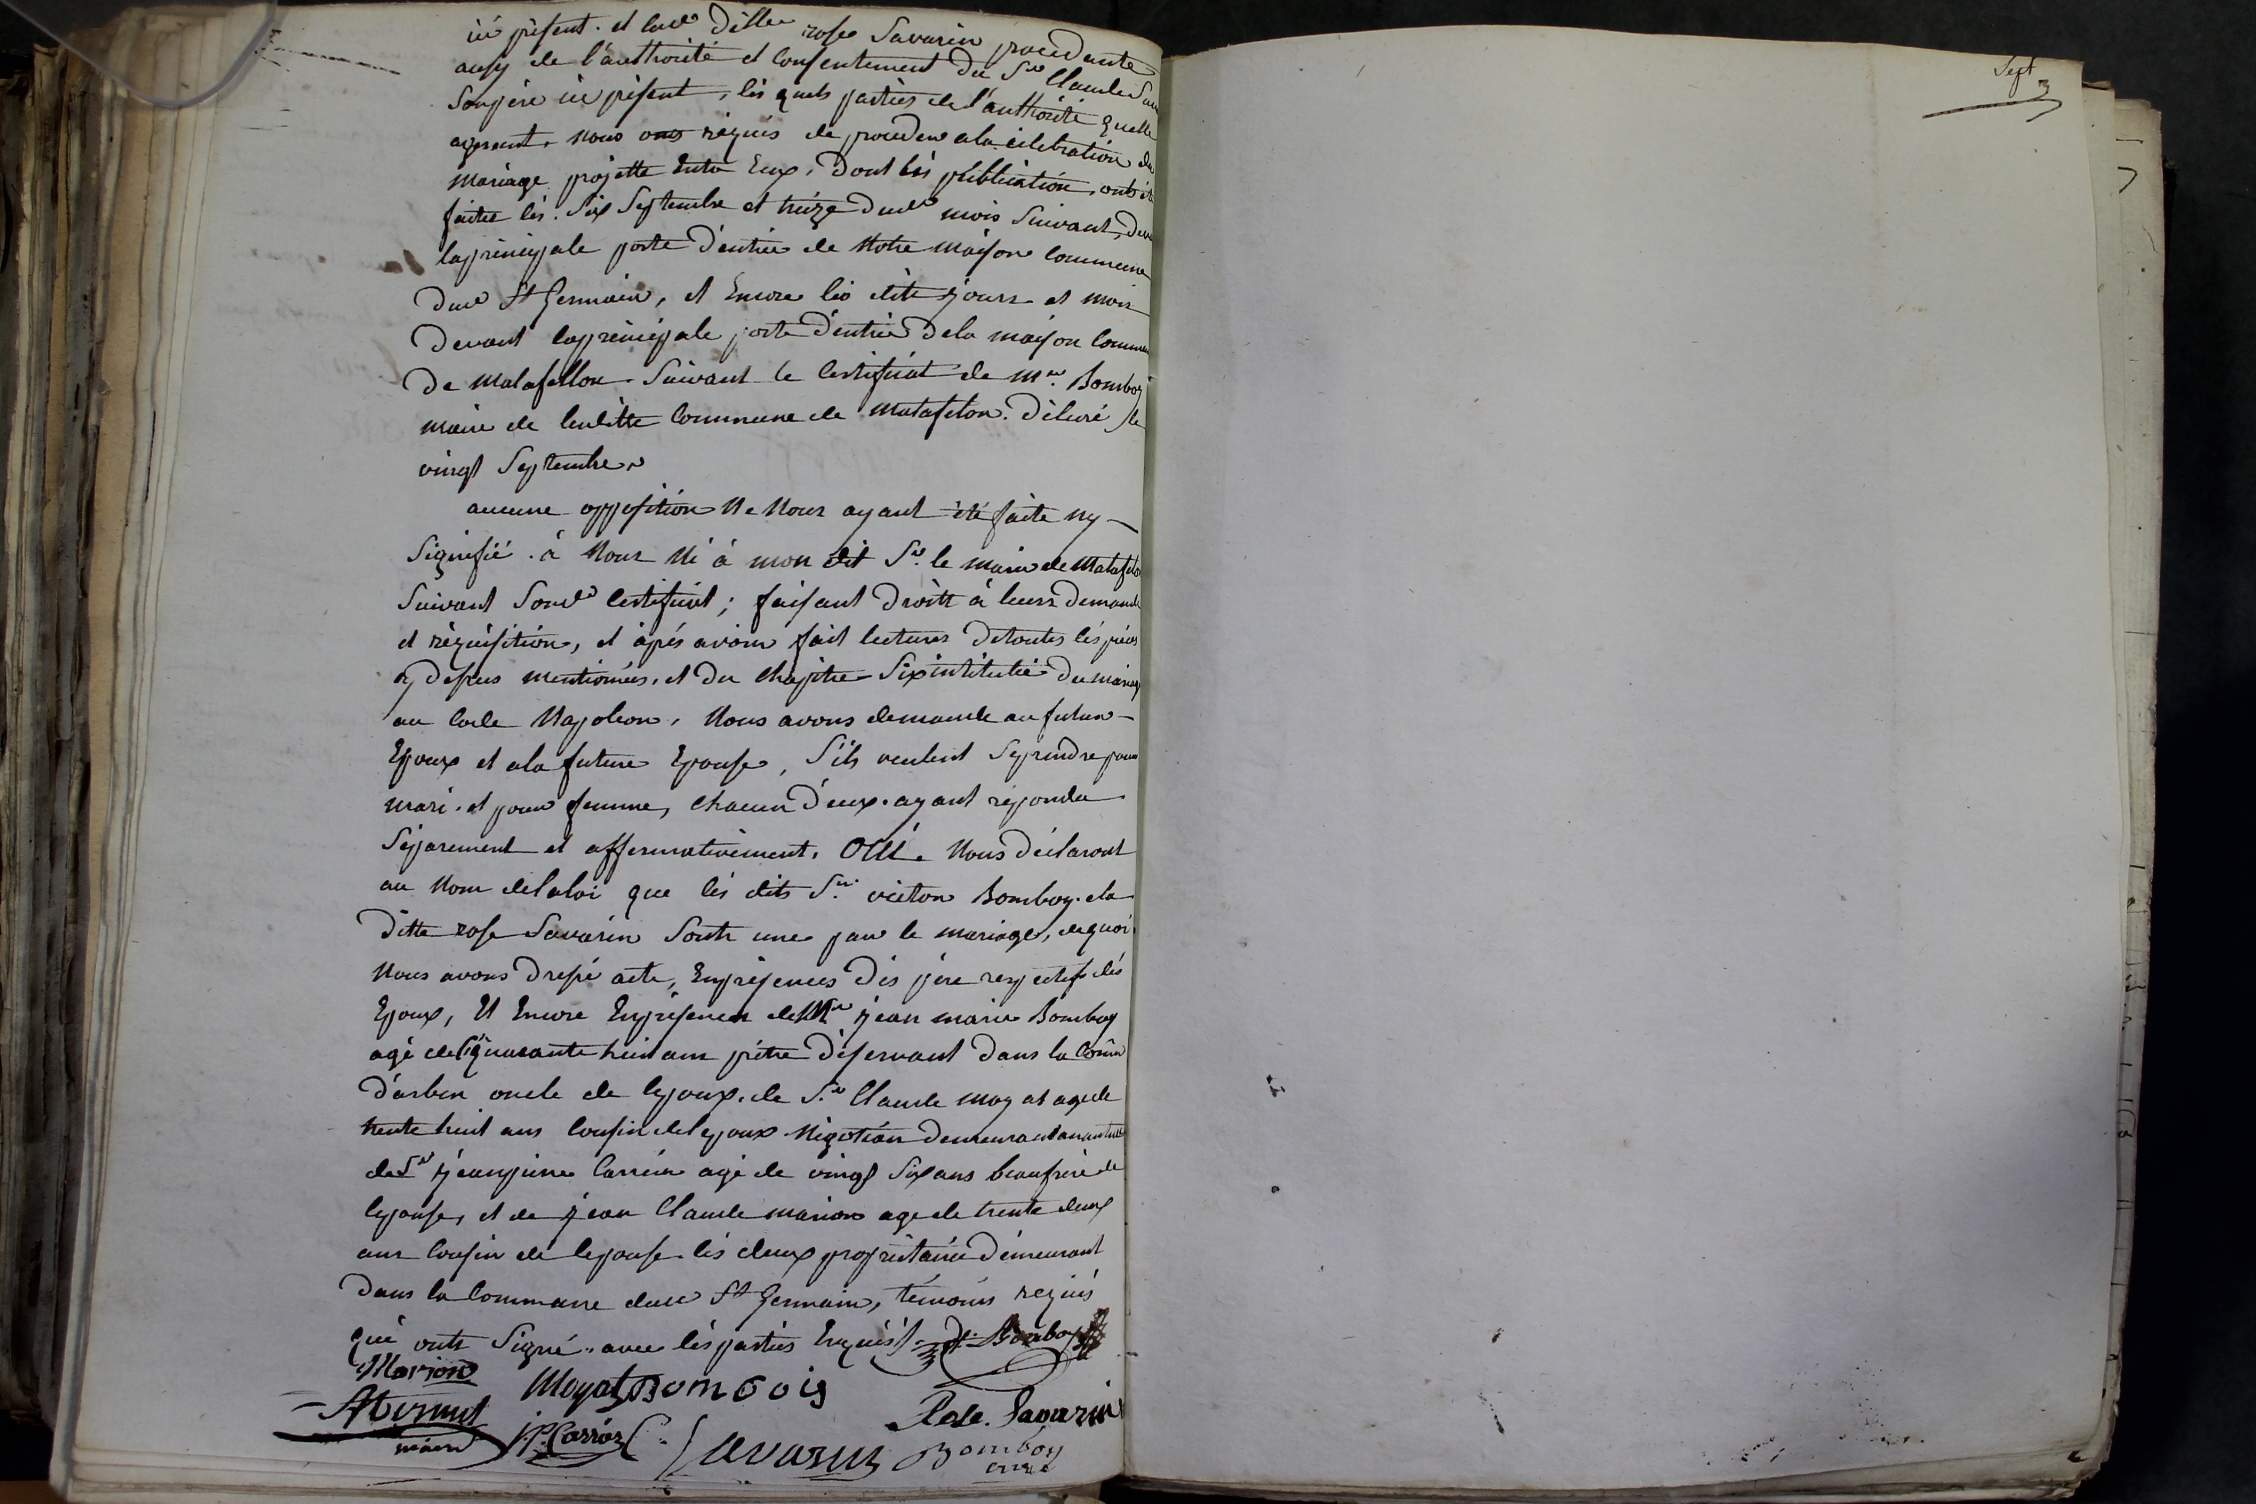 ici présent. et lade ditte rose Savarin procédante
ausy de l'authorité et consentement du Sr Claude Sava
Son père ici présent, lés quels parties de l'authorité quelle
agissent, nous ons réquis de procéder a la célébration du
Mariage projetté Entre Eux, Dont lés publication, onts été
faitte lés. Six Septembre et treize dudt mois Suivant, Devt
la principale porte d'entrée de Notre maison Commune
Dudt St Germain, et Encore les dits jours et mois
Devant la principale porte d'entrée de la maison Commun
De Matafellon Suivant le Certificat de Mr. Bomboy
Maire de laditte Commune de Matafelon. Délivré le
vingt Septembre
aucune opposition Ne Nous ayant été faite ny
Signifié. à Nous Ni à mon dit Sr. le maire de Matafelo
Suivant Sond Certificat; faisant Droitt à leurs Demande
et réquisition, et àprés avoir fait lectures de toutes lés piéces
cy Dessus mentionnées. et Du Chapitre Six intitulée Du mariage
au Code Napoléon, Nous avons demandé au futur
Epoux et a la future Epouse, S'ils veulent Se prendre pour
mari. et pour femme, Chacun D'eux. ayant répondu
Séparement et affermativement, OUI. Nous Déclaront
au Nom de la loi que lés dits Sr. victor Bomboy. et la
Ditte rose Savarin Sonts unes par le mariage, de quoi
Nous avons Dressé acte, En présences Dés père respectifs dés
Epoux, Et Encore En présence de Mr jean marie Bomboy
agé de quarante huit ans prètre Déservant Dans la Comm
D'arben oncle de lepoux. de Sr Claude moyat age de
trente huit ans Cousin de lepoux Négotian Demeurant a nantua
de Sr jean pierre Carriér agé de vingt Six ans beaufrère de
lepouse, et de jean Claude marion age de trente deux
ans Cousin de lepouse lés deux propriétaire Démeurant
Dans la Commune dudt St Germain, témoins requis
qui onts Signé avec lés parties Enquis V. Bomboy
Marion
Moyat Bombois
Rose. Savarin
maire
J.P. Carriér
Savarin Bomboy
curé
Sept